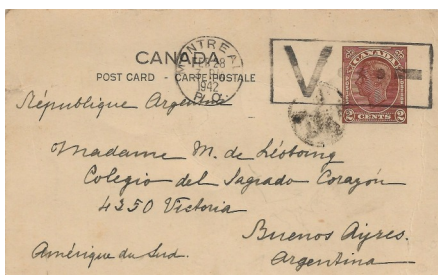 CANADA
POST CARD - CARTE POSTALE
MONTREAL
FEB 28
1942
P.Q.
V...-
CANADA
2 CENTS 2
République Argentine
Madame M. de
Colegio del Sagrado Corazón
4250 Victoria
Buenos Ayres.
Argentina
Amérique du Sud.